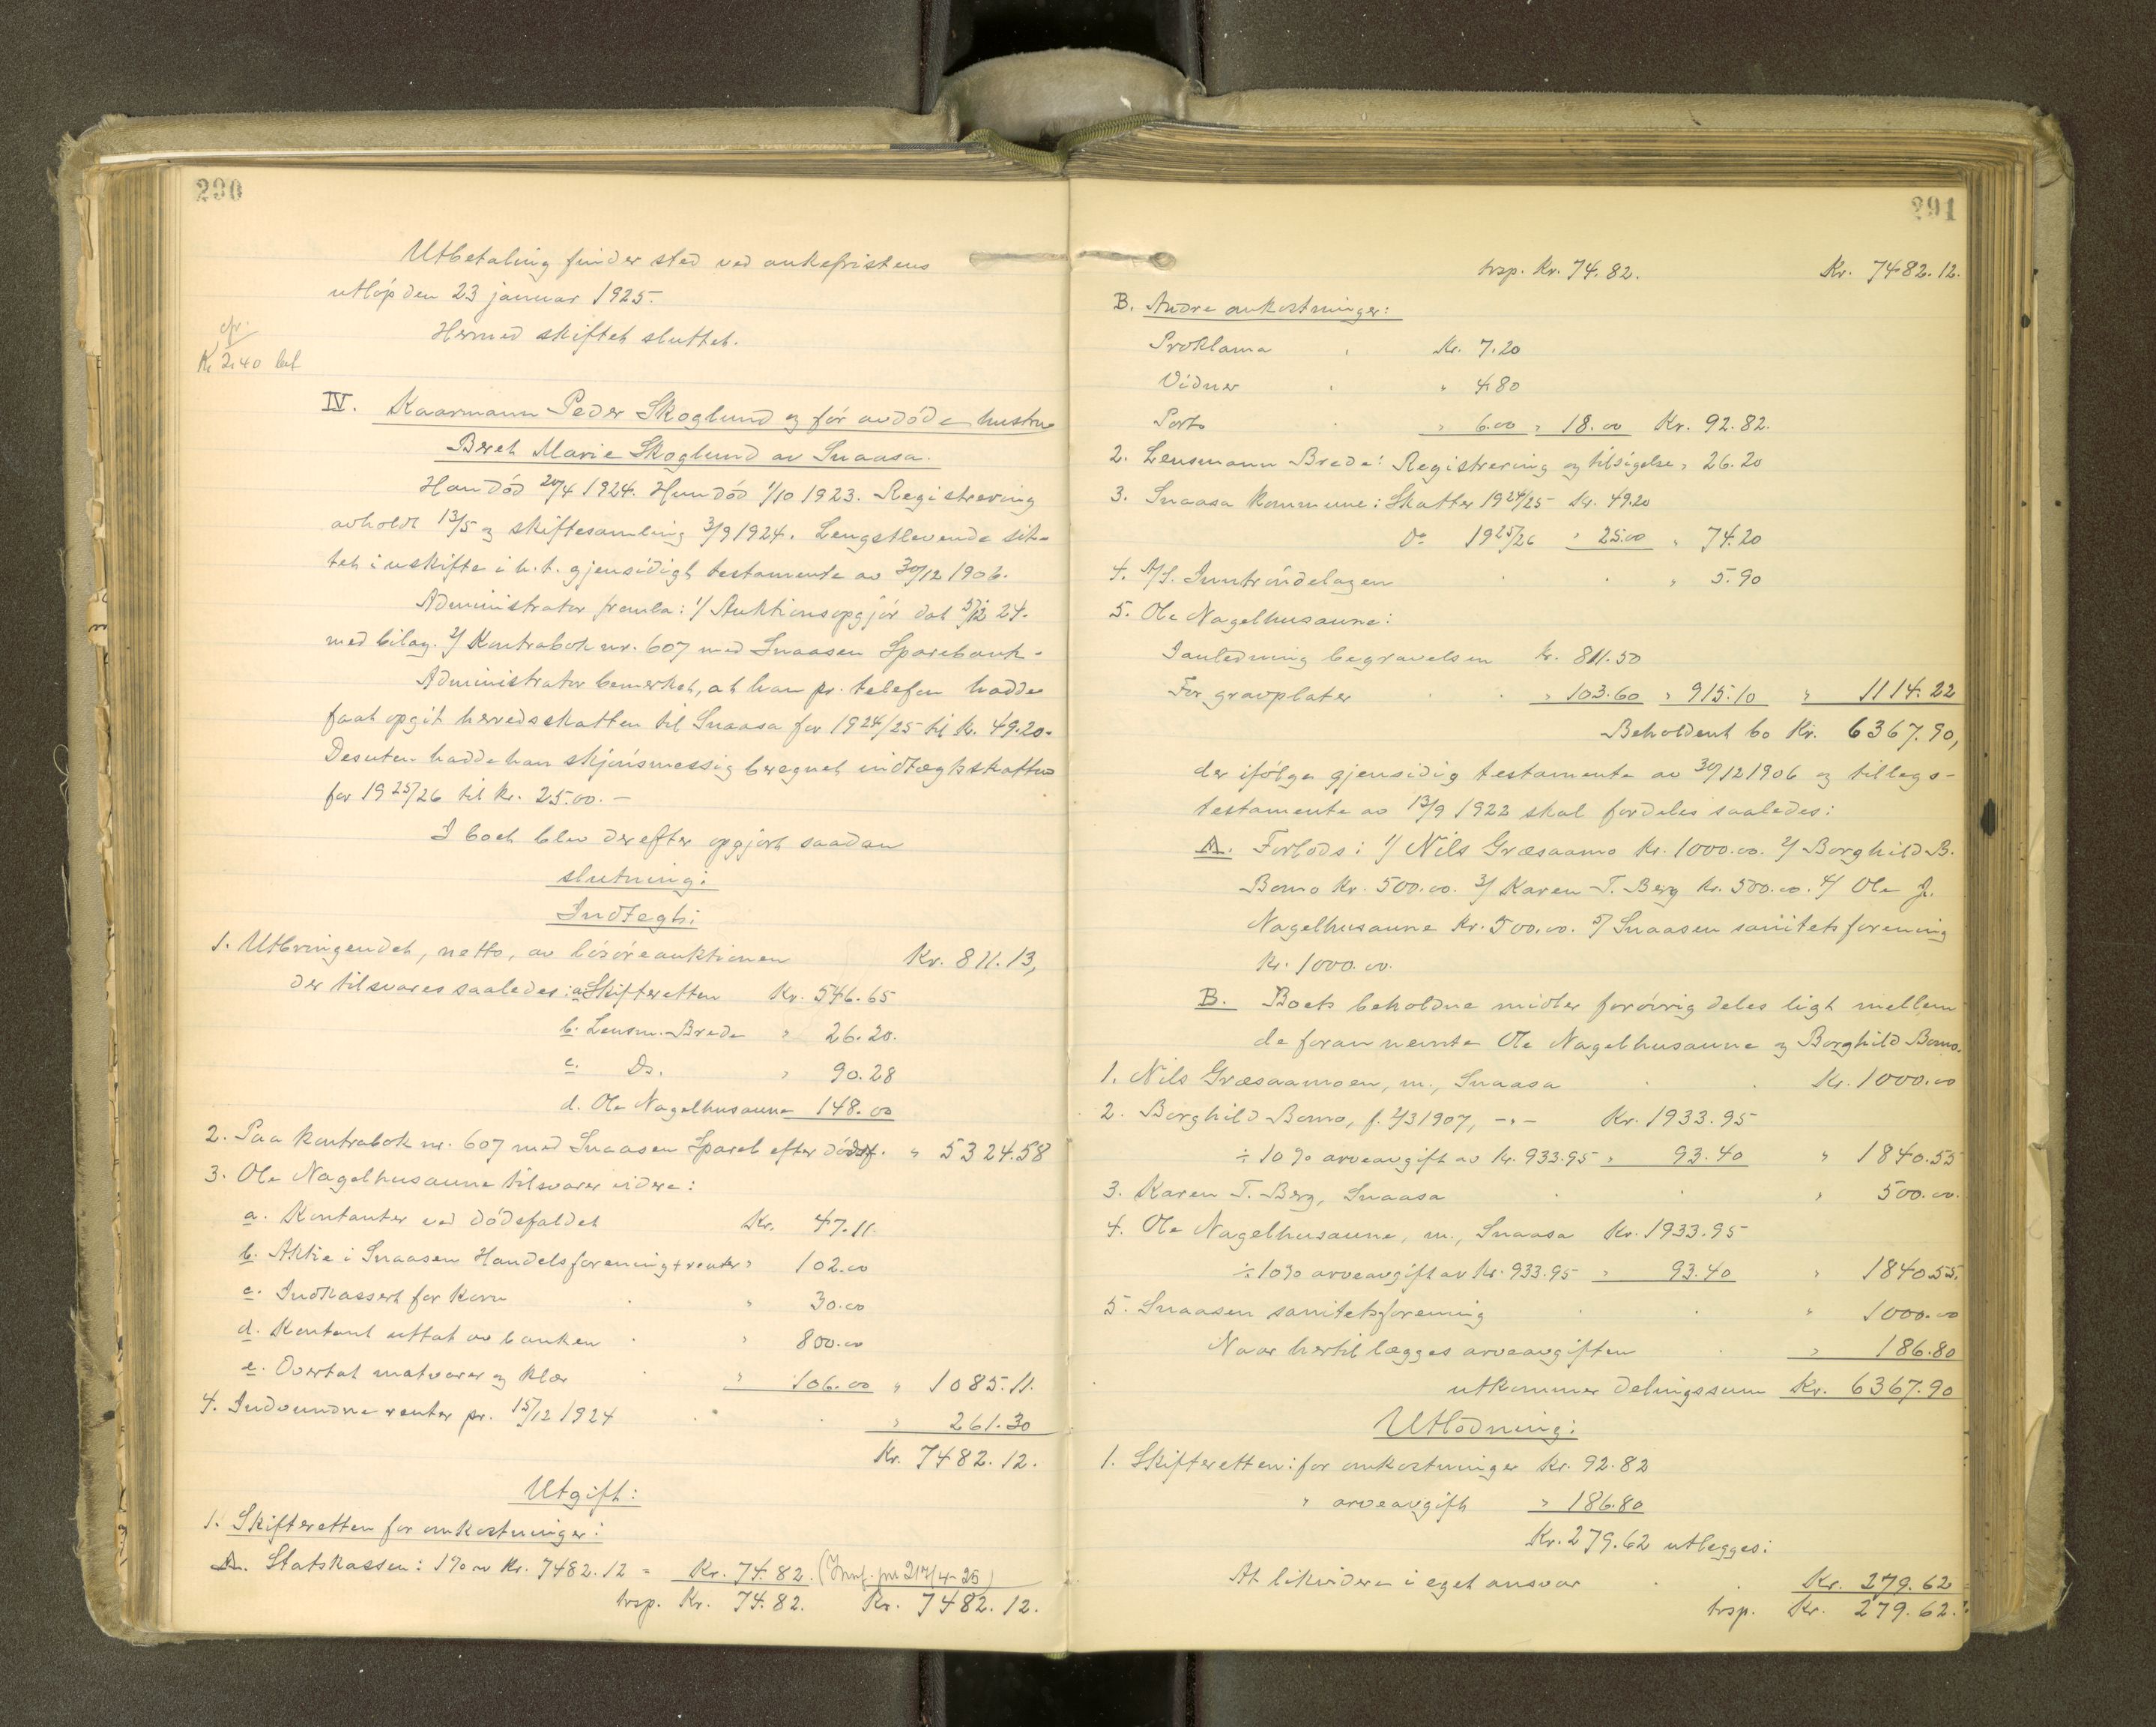 290
Utbetaling finder sted ved ankefristens
utløp den 23 januar 1925.
Hermed skiftet sluttet.
Kr 2.40 bet
IV. Kaarmann Peder Skoglund og før avdøde hustru
Beret Marie Skoglund av Snaasa.
Han død 20/4 1924. Hun død 1/10 1923. Registrering
avholdt 13/5 og skiftesamling 3/9 1924. Lengstlevende sit-
tet i uskifte i h.t. gjensidigt testamente av 30/12 1906.
Administrator fremla: 1/ Auktionsopgjør dat 5/12 24.
med bilag. 2/ Kontrabok nr. 607 med Snaasen Sparebank.
Administrator bemerket, at han pr. telefon hadde
faat opgit herredsskatten til Snaasa for 1924/25 til kr. 49.20.
Desuten hadde han skjønsmessig beregnet indtægtsskatten
for 1925/26 til kr. 25.00.-
I boet blev derefter opgjort saadan
slutning:
Indtegt:
1. Utbringendet, netto, av løsøreauktionen Kr. 811.13,
der tilsvares saaledes: a. Skifteretten Kr. 546.65
b. Lensm. Brede " 26.20.
c. Do. " 90.28
d. Ole Nagelhusaune 148.00
2. Paa kontrabok nr. 607 med Snaasen Spareb efter dødsf. " 5324.58
3. Ole Nagelhusaune tilsvarer videre:
a. Kontanter ved dødsfaldet Kr. 47.11.
b. Aktie i Snaasen Handelsforening + renter " 102.00
c. Indkassert for korn " 30.00
d. Kontant uttat av banken " 800.00
e. Overtat matvarer og klær " 106.00 " 1085.11.
4. Indvundne renter pr. 15/12 1924 " 261.30
Kr. 7482.12.
Utgift:
1. Skifteretten for omkostninger:
A. Statskassen: 1% av Kr. 7482.12 = Kr. 74.82.
trsp. Kr. 74.82. Kr. 7482.12.
291
trsp. Kr. 74.82. Kr. 7482.12.
B. Andre omkostninger:
Proklama Kr. 7.20
Vidner " 4.80
Porto " 6.00 " 18.00 Kr. 92.82.
2. Lensmann Brede: Registrering og tilsigelse " 26.20
3. Snaasa kommune: Skatter 1924/25 kr. 49.20
Do 1925/26 " 25.00 " 74.20
4. A/S. Inntrøndelagen " 5.90
5. Ole Nagelhusaune:
I anledning begravelsen kr. 811.50
For gravplater " 103.60 " 915.10 " 1114.22
Beholdent bo Kr. 6367.90,
der ifølge gjensidig testamente av 30/12 1906 og tillegs-
testamente av 13/9 1922 skal fordeles saaledes:
A. Forlods: 1/ Nils Græsaamo kr. 1000.00. 2/ Borghild B.
Bomo Kr. 500.00. 3/ Karen T. Berg kr. 500.00. 4/ Ole J.
Nagelhusaune kr. 500.00. 5/ Snaasen sanitetsforening
kr. 1000.00.
B. Boets beholdne midler forøvrig deles likt mellem
de foran nevnte Ole Nagelhusaune og Borghild Bomo.
1. Nils Græsaamoen, m., Snaasa Kr. 1000.00
2. Borghild Bomo, f. 2/3 1907, -"- Kr. 1933.95
÷ 10% arveavgift av kr. 933.95 " 93.40 " 1840.55
3. Karen T. Berg, Snaasa " 500.00.
4. Ole Nagelhusaune, m., Snaasa Kr. 1933.95
÷ 10% arveavgift av kr. 933.95 " 93.40 " 1840.55.
5. Snaasen sanitetsforening " 1000.00
Naar hertil lægges arveavgiften " 186.80
utkommer delingssum Kr. 6367.90
Utlodning:
1. Skifteretten: for omkostninger kr. 92.82
" arveavgift " 186.80
Kr. 279.62 utlegges:
At likvidere i eget ansvar Kr. 279.62
trsp. Kr. 279.62.